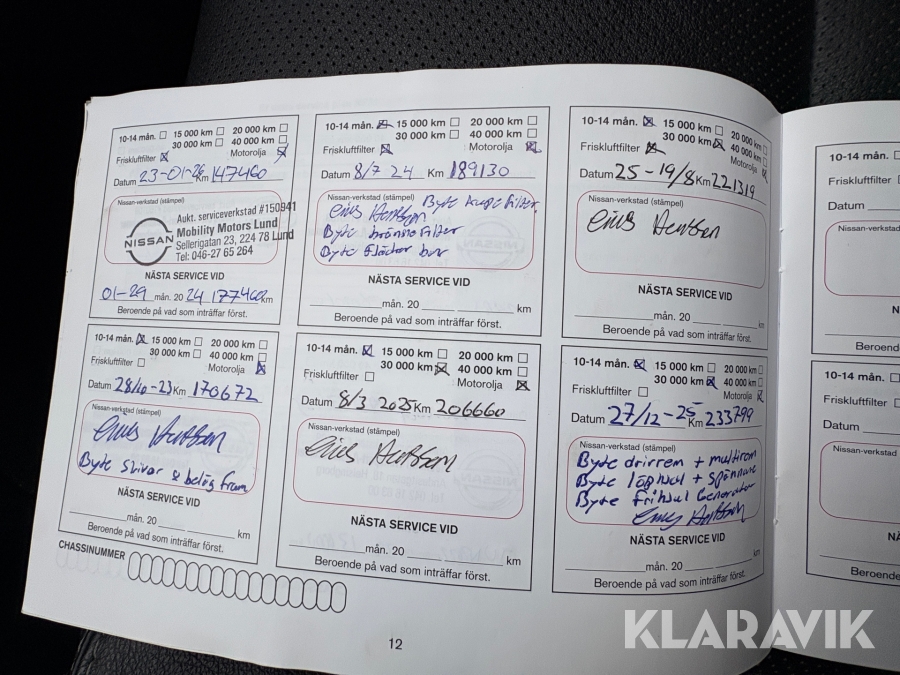 10-14 mån. 15 000 km 20 000 km
30 000 km 40 000 km
Friskluftfilter Motorolja
Datum 23-01-26 Km 147460
Nissan-verkstad (stämpel)
NISSAN
Aukt. serviceverkstad #150941
Mobility Motors Lund
Sellerigatan 23, 224 78 Lund
Tel: 046-27 65 264
NÄSTA SERVICE VID
01-29 mån. 20 24 177460 km
Beroende på vad som inträffar först.
10-14 mån. 15 000 km 20 000 km
30 000 km 40 000 km
Friskluftfilter Motorolja
Datum 8/7 24 Km 189130
Nissan-verkstad (stämpel)
Byte kupefilter.
Byte bränslefilter
Byte
NÄSTA SERVICE VID
mån. 20 km
Beroende på vad som inträffar först.
10-14 mån. 15 000 km 20 000 km
30 000 km 40 000 km
Friskluftfilter Motorolja
Datum 25-19/8 Km 221319
Nissan-verkstad (stämpel)
NÄSTA SERVICE VID
mån. 20 km
Beroende på vad som inträffar först.
10-14 mån. 15 000 km 20 000 km
30 000 km 40 000 km
Friskluftfilter Motorolja
Datum 28/10-23 Km 170672
Nissan-verkstad (stämpel)
Byte skivor & beläg fram
NÄSTA SERVICE VID
mån. 20 km
Beroende på vad som inträffar först.
10-14 mån. 15 000 km 20 000 km
30 000 km 40 000 km
Friskluftfilter Motorolja
Datum 8/3 2025 Km 206660
Nissan-verkstad (stämpel)
NÄSTA SERVICE VID
mån. 20 km
Beroende på vad som inträffar först.
10-14 mån. 15 000 km 20 000 km
30 000 km 40 000 km
Friskluftfilter Motorolja
Datum 27/12-25 Km 233799
Nissan-verkstad (stämpel)
Byte drivrem + multirem
Byte löphjul + spännare
Byte frihjul Generator
NÄSTA SERVICE VID
mån. 20 km
Beroende på vad som inträffar först.
CHASSINUMMER
12
10-14 mån.
Friskluftfilter
Datum
Nissan-verkstad
Beroende
10-14 mån.
Friskluftfilter
Datum
Nissan-verkstad
Beroende
KLARAVIK